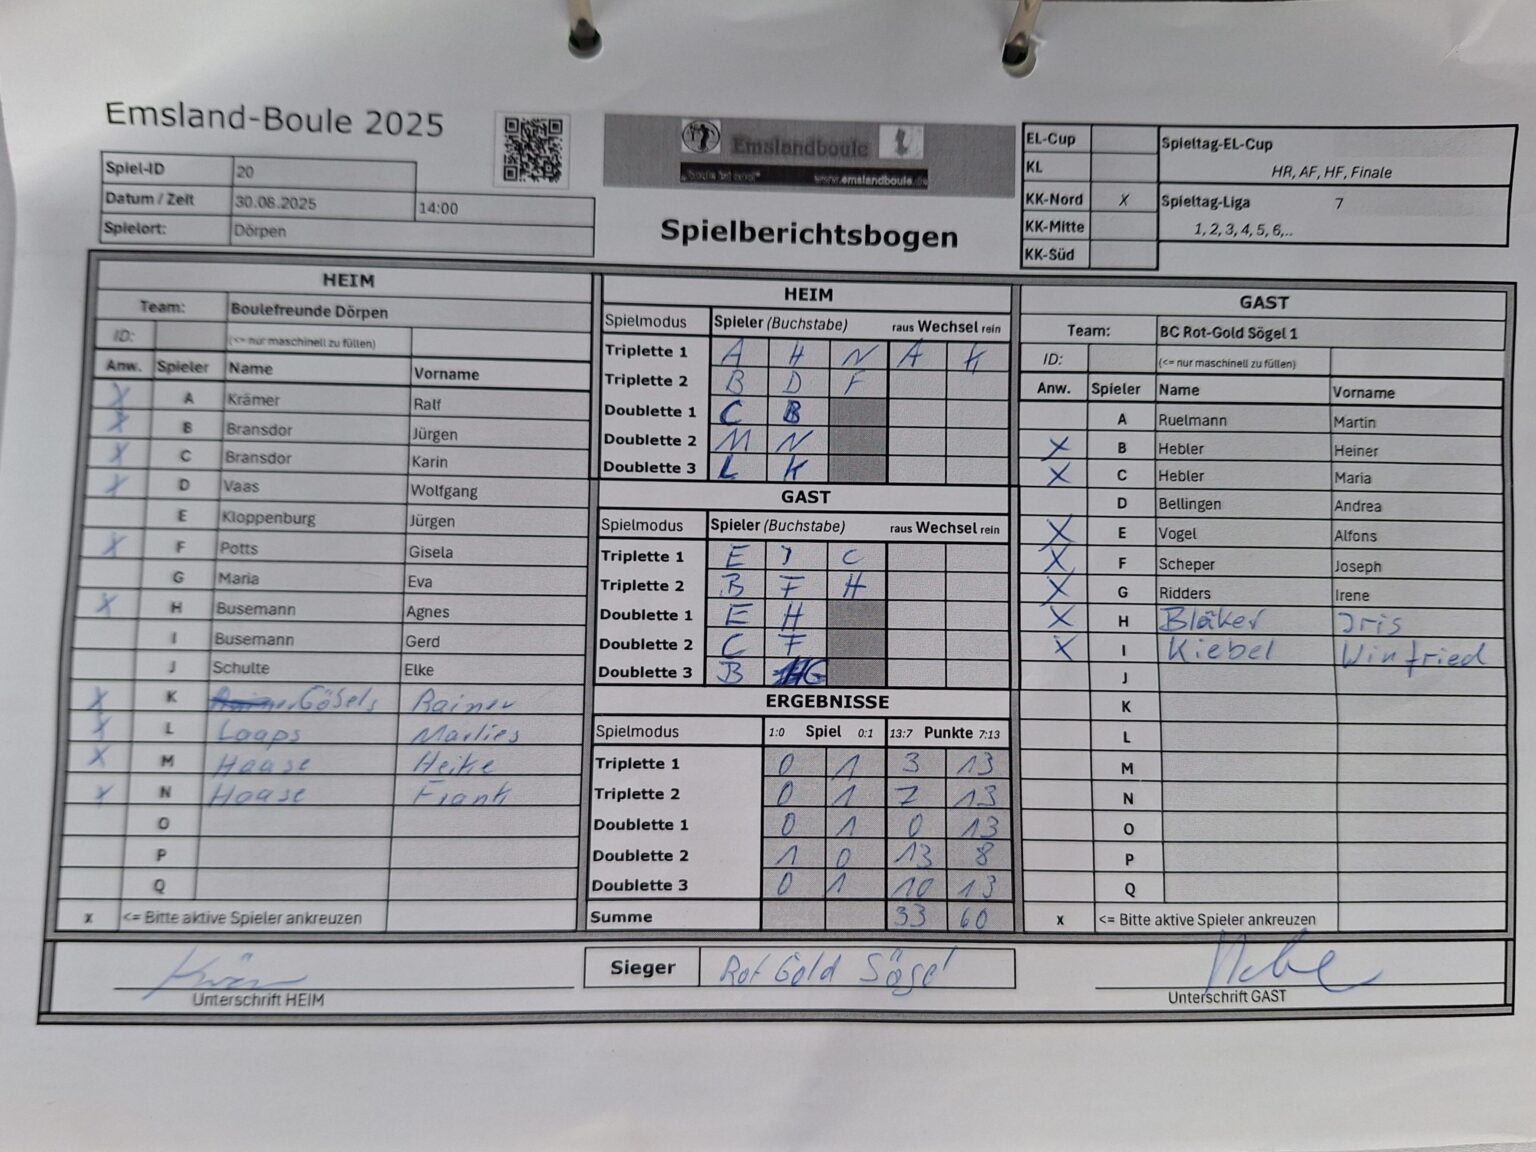 Emsland-Boule 2025
Spiel-ID 20
Datum / Zeit 30.08.2025 14:00
Spielort: Dörpen
Emslandboule
www.emslandboule.de
Spielberichtsbogen
EL-Cup Spieltag-EL-Cup
KL HR, AF, HF, Finale
KK-Nord X Spieltag-Liga 7
KK-Mitte 1, 2, 3, 4, 5, 6,..
KK-Süd
HEIM
Team: Boulefreunde Dörpen
ID: (<= nur maschinell zu füllen)
Anw. Spieler Name Vorname
X A Krämer Ralf
X B Bransdor Jürgen
X C Bransdor Karin
X D Vaas Wolfgang
E Kloppenburg Jürgen
X F Potts Gisela
G Maria Eva
X H Busemann Agnes
I Busemann Gerd
J Schulte Elke
X K Gösels Rainer
X L Laaps Marlies
X M Haase Heike
X N Haase Frank
O
P
Q
x <= Bitte aktive Spieler ankreuzen
HEIM
Spielmodus Spieler (Buchstabe) raus Wechsel rein
Triplette 1 A H N A K
Triplette 2 B D F
Doublette 1 C B
Doublette 2 M N
Doublette 3 L K
GAST
Spielmodus Spieler (Buchstabe) raus Wechsel rein
Triplette 1 E I C
Triplette 2 B F H
Doublette 1 E H
Doublette 2 C F
Doublette 3 B G
ERGEBNISSE
Spielmodus 1:0 Spiel 0:1 13:7 Punkte 7:13
Triplette 1 0 1 3 13
Triplette 2 0 1 7 13
Doublette 1 0 1 0 13
Doublette 2 1 0 13 8
Doublette 3 0 1 10 13
Summe 33 60
GAST
Team: BC Rot-Gold Sögel 1
ID: (<= nur maschinell zu füllen)
Anw. Spieler Name Vorname
A Ruelmann Martin
X B Hebler Heiner
X C Hebler Maria
D Bellingen Andrea
X E Vogel Alfons
X F Scheper Joseph
X G Ridders Irene
X H Bläker Iris
X I Kiebel Winfried
J
K
L
M
N
O
P
Q
x <= Bitte aktive Spieler ankreuzen
Unterschrift HEIM
Sieger Rot Gold Sögel
Unterschrift GAST